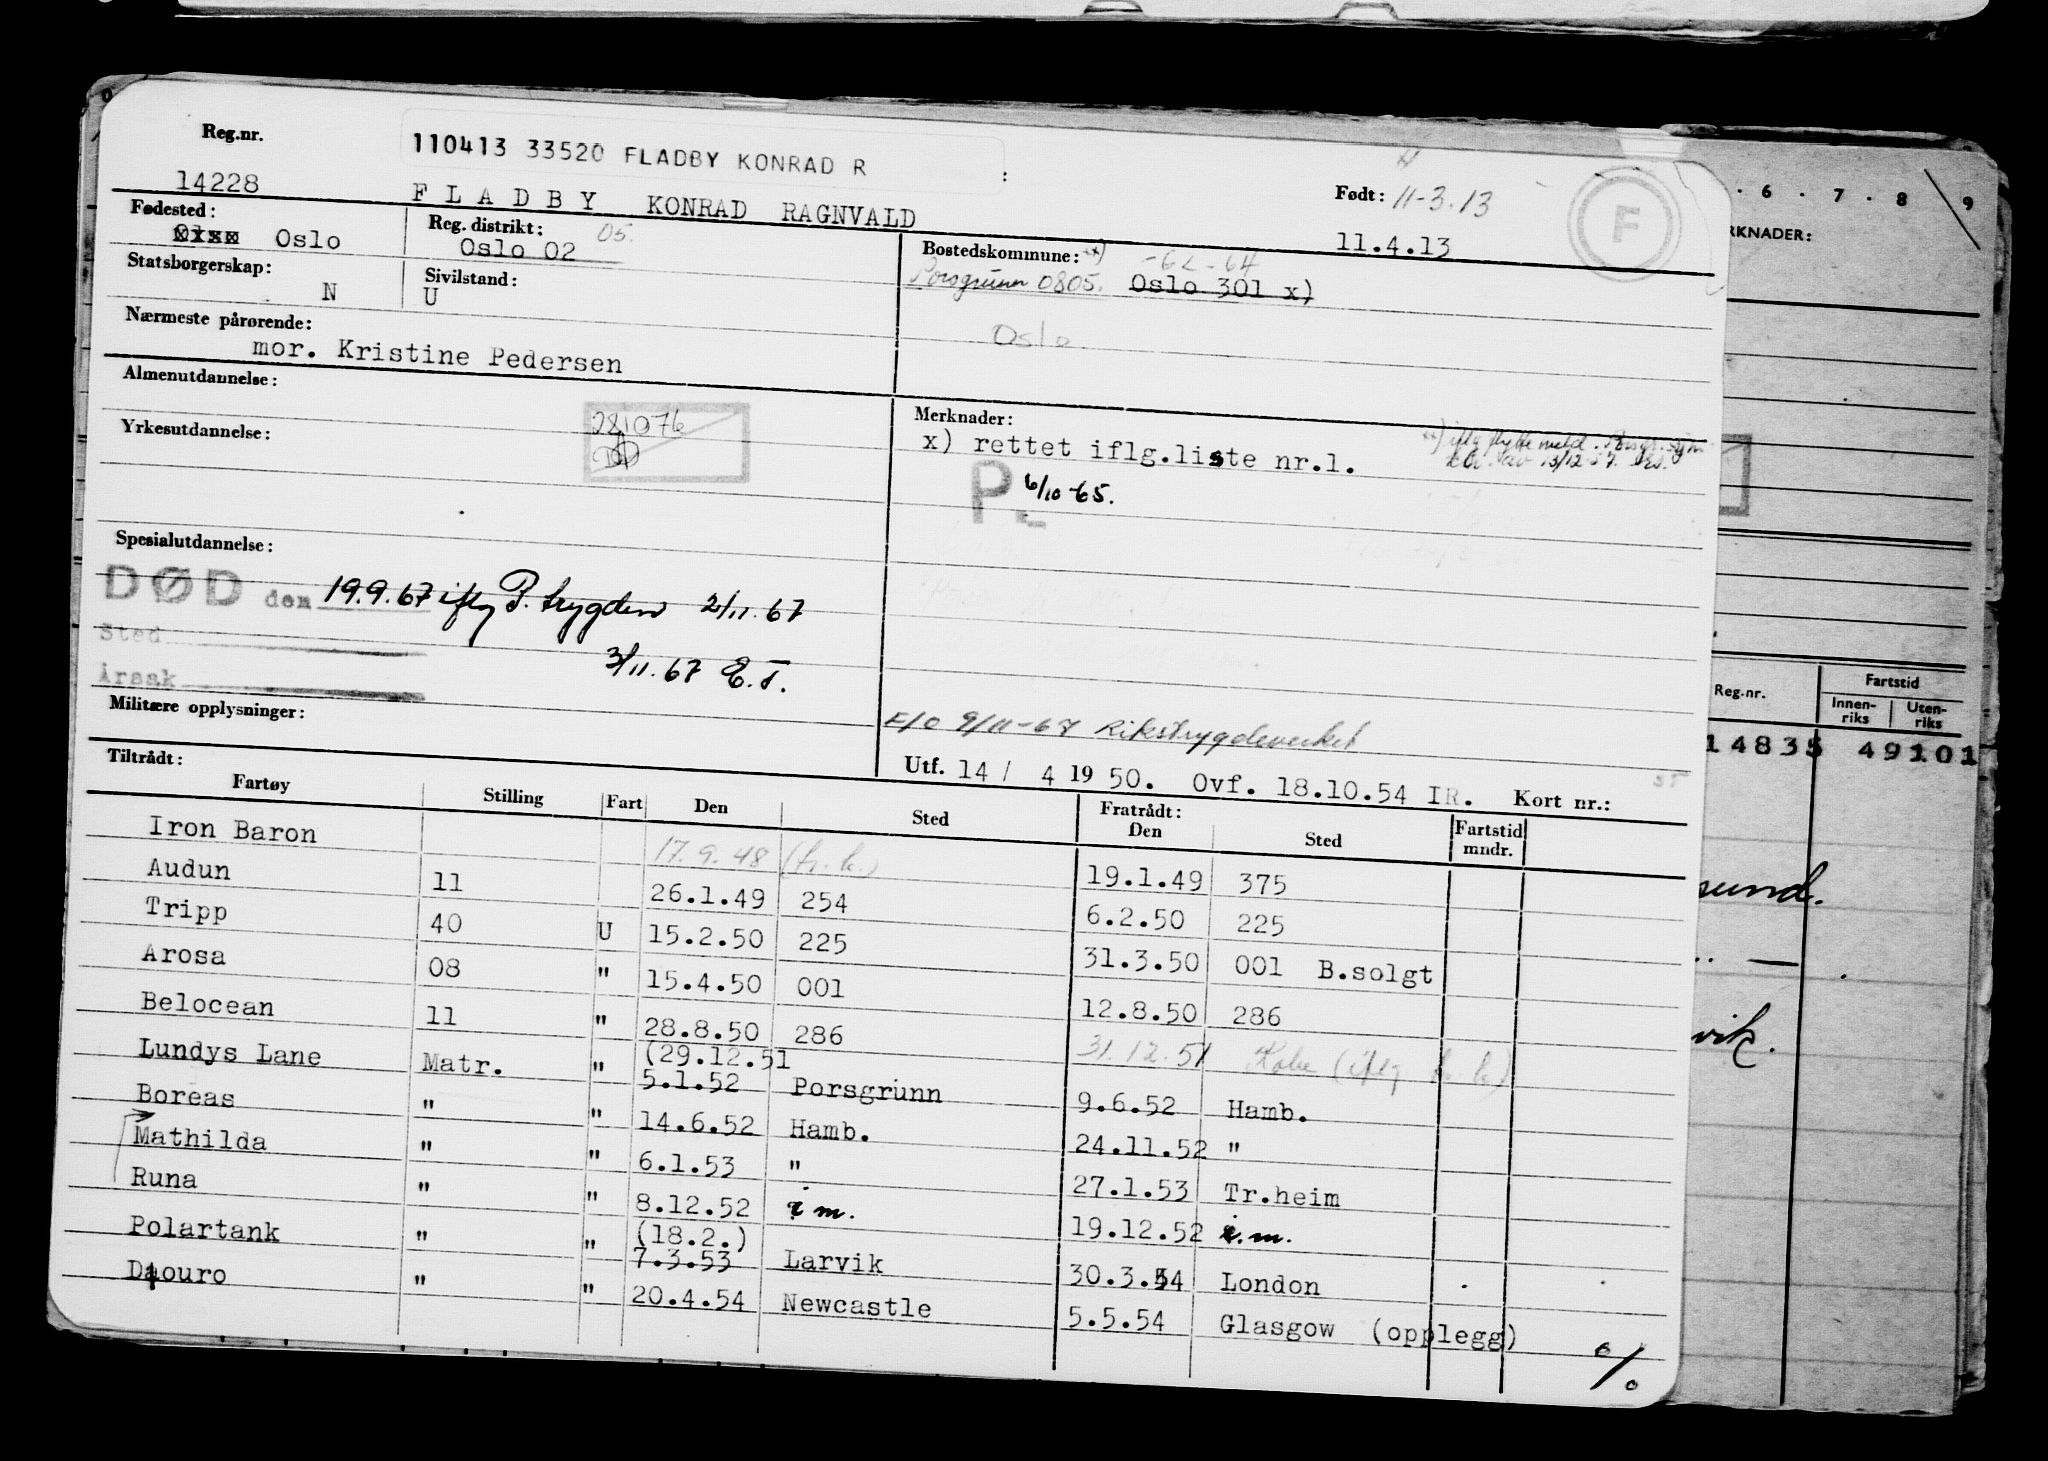 Reg.nr.
110413 33520 FLADBY KONRAD R :
14228 FLADBY KONRAD RAGNVALD
Født: 11-3.13
11.4.13
F
Fødested: Oslo
Reg. distrikt: 05.
Oslo 02
Bostedskommune: x) -62-64
Porsgrunn 0805. Oslo 301 x)
Oslo
Statsborgerskap: N
Sivilstand: U
Nærmeste pårørende:
mor. Kristine Pedersen
Almenutdannelse:
Yrkesutdannelse:
281076
Merknader:
x) rettet iflg.liste nr.1.
P 6/10-65.
Spesialutdannelse:
DØD den 19.9.67 iflg P. trygden 2/11.67
Sted
3/11.67 E.T.
Årsak
Militære opplysninger:
E/O 9/11-67 Rikstrygdeverket
Utf. 14/ 4 1950. Ovf. 18.10.54 IR. Kort nr.:
Tiltrådt:
Fartøy Stilling Fart Den Sted Fratrådt: Den Sted Fartstid mndr.
Iron Baron 17.9.48 (h.k.) 19.1.49 375
Audun 11 26.1.49 254 6.2.50 225
Tripp 40 U 15.2.50 225 31.3.50 001 B.solgt
Arosa 08 " 15.4.50 001 12.8.50 286
Belocean 11 " 28.8.50 286 31.12.51 Kobe (iflg h.k)
Lundys Lane Matr. " (29.12.51 5.1.52 Porsgrunn 9.6.52 Hamb.
Boreas " " 14.6.52 Hamb. 24.11.52 "
Mathilda " " 6.1.53 " 27.1.53 Tr.heim
Runa " " 8.12.52 i.m. 19.12.52 i.m.
Polartank " " (18.2.) 7.3.53 Larvik 30.3.54 London
Douro " " 20.4.54 Newcastle 5.5.54 Glasgow (opplegg)
%
. 6 . 7 . 8 9
RKNADER:
Reg.nr. Fartstid
Innen-riks Uten-riks
14835 49101
sund.
vik.